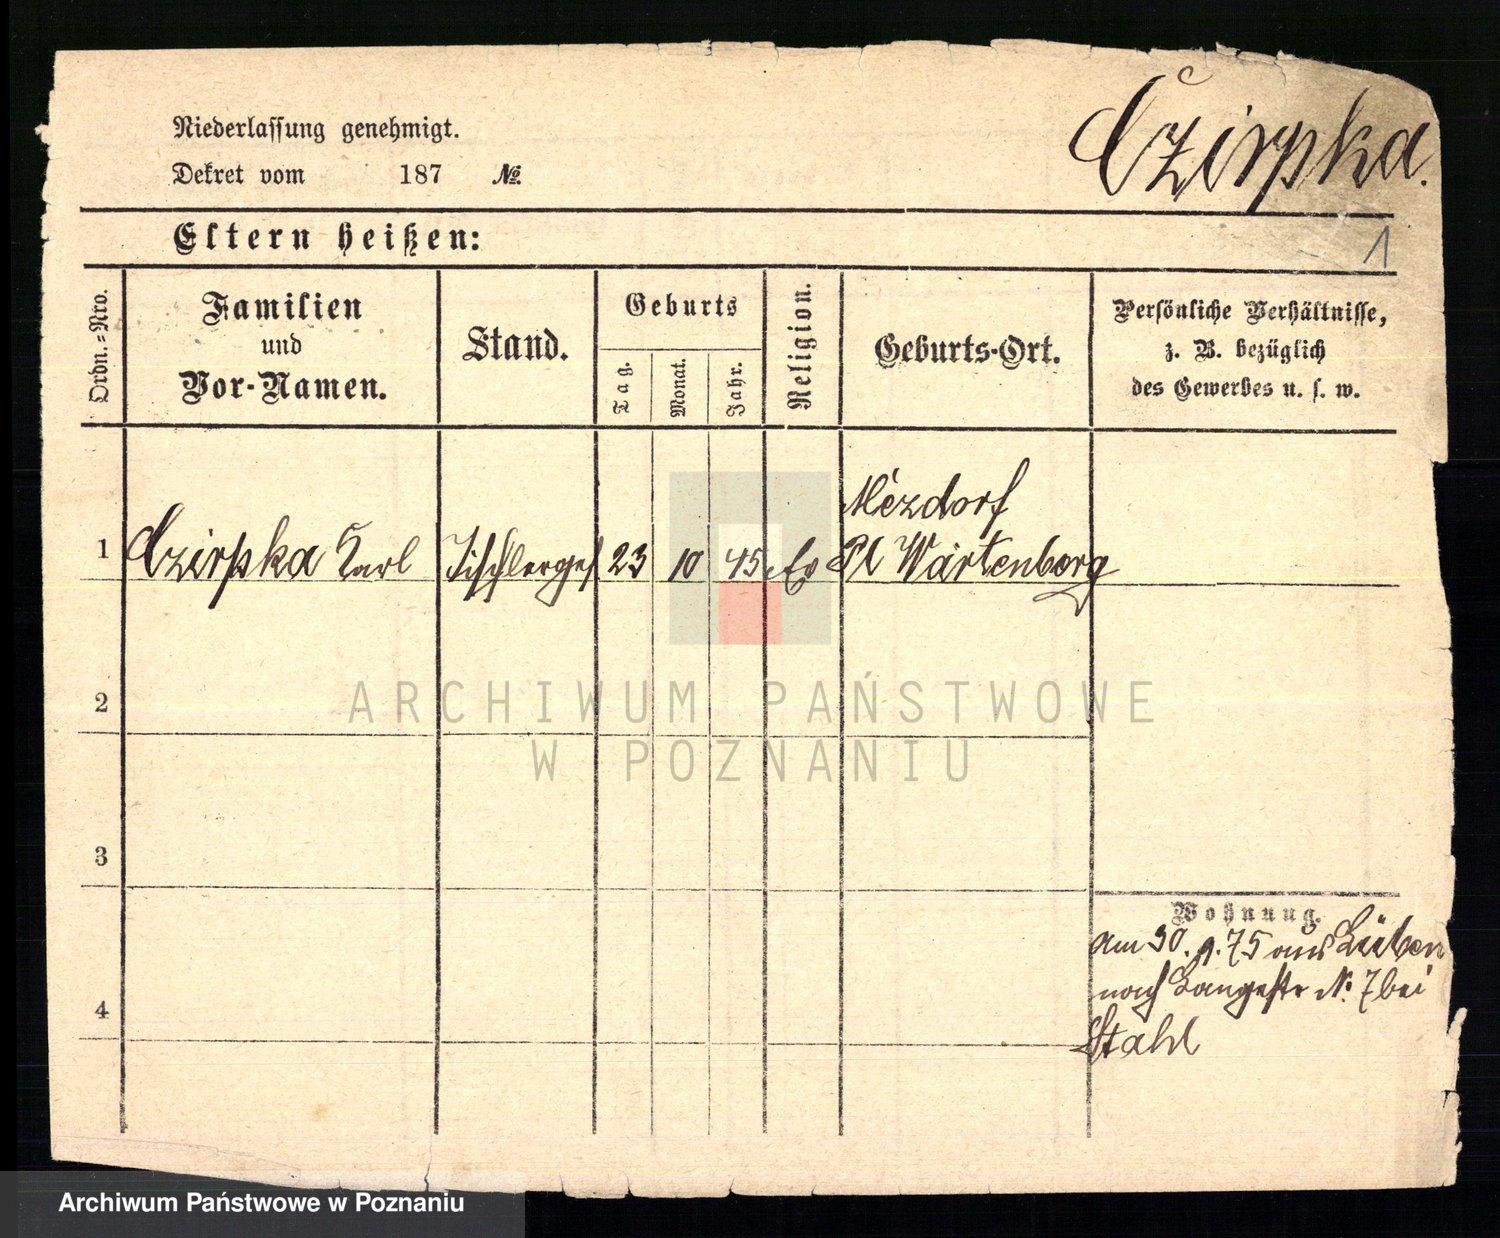 Czirpka.
Niederlassung genehmigt.
Dekret vom 187 №
1
Eltern heißen:
Ordn.-Nro.
Familien
und
Vor-Namen.
Stand.
Geburts
Tag.
Monat.
Jahr.
Religion.
Geburts-Ort.
Persönliche Verhältnisse,
z. B. bezüglich
des Gewerbes u. s. w.
Mezdorf
1 Czirpka Karl Tischlerges 23 10 45 Ev Pl Wartenberg
2
3
4
Wohnung.
am 30. 9. 75 aus Lüben
nach Langestr N: 7 bei
Stahl
ARCHIWUM PAŃSTWOWE
W POZNANIU
Archiwum Państwowe w Poznaniu